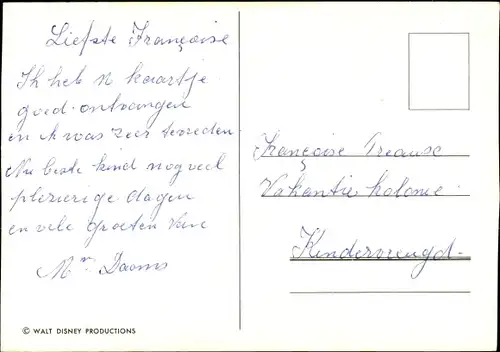 Liefste Françoise
Ik heb u kaartje
goed ontvangen
en ik was zeer tevreden
Nu beste kind nog veel
plezierige dagen
en vele groeten van
Mr Daoms
© WALT DISNEY PRODUCTIONS
Françoise
Vakantie kolonie
Kindervreugd